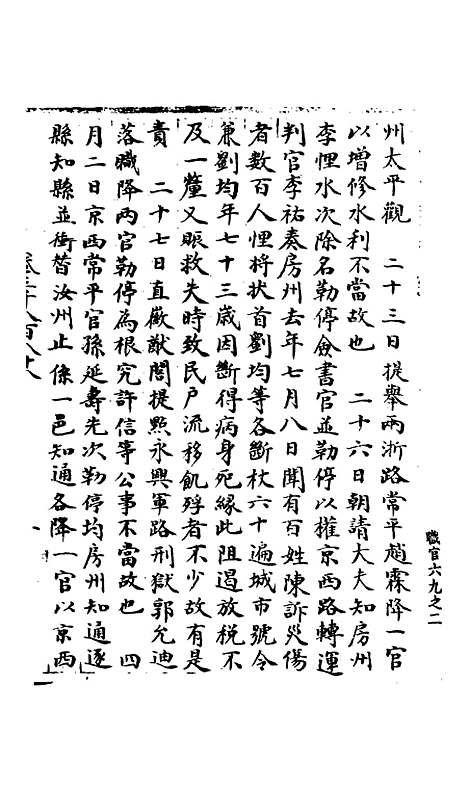 職官六九之二
州太平觀　二十三日提舉兩浙路常平趙霖降一官
以增修水利不當故也　二十六日朝請大夫知房州
李悝水次除名勒停僉書官並勒停以權京西路轉運
判官李祐奏房州去年七月八日聞有百姓陳訴災傷
者數百人悝將狀首劉均等各斷杖六十遍城市號令
兼劉均年七十三歲因斷得病身死緣此阻遏放稅不
及一釐又賑救失時致民戶流移飢殍者不少故有是
責　二十七日直徽猷閣提點永興軍路刑獄郭允迪
落職降兩官勒停為根究許信等公事不當故也　四
月二日京西常平官孫延壽先次勒停均房州知通逐
縣知縣並衝替汝州止係一邑知通各降一官以京西